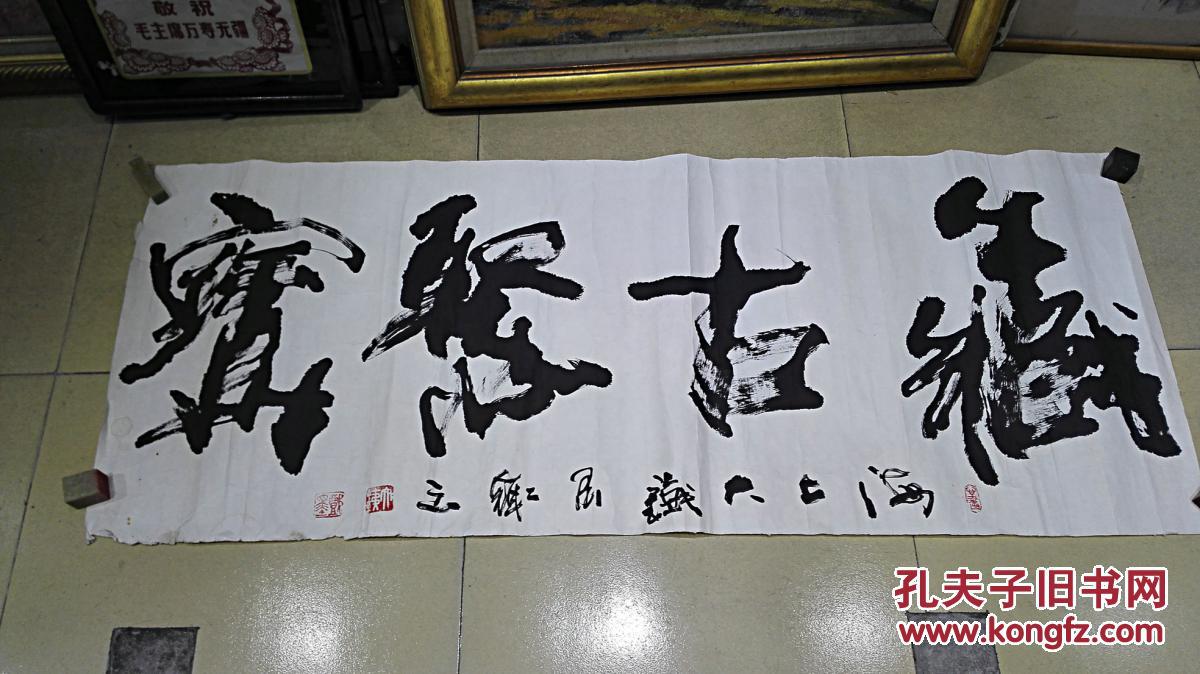 敬祝
毛主席万寿无疆
藏古聚寳
海上大鐵
孔夫子旧书网
www.kongfz.com